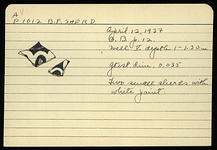 A
P 1012 B.F. SHERD
April 12, 1937
p. 12
Well Z depth 1-1.20 m
gtst. dim. 0.035
Two small sherds with
white paint